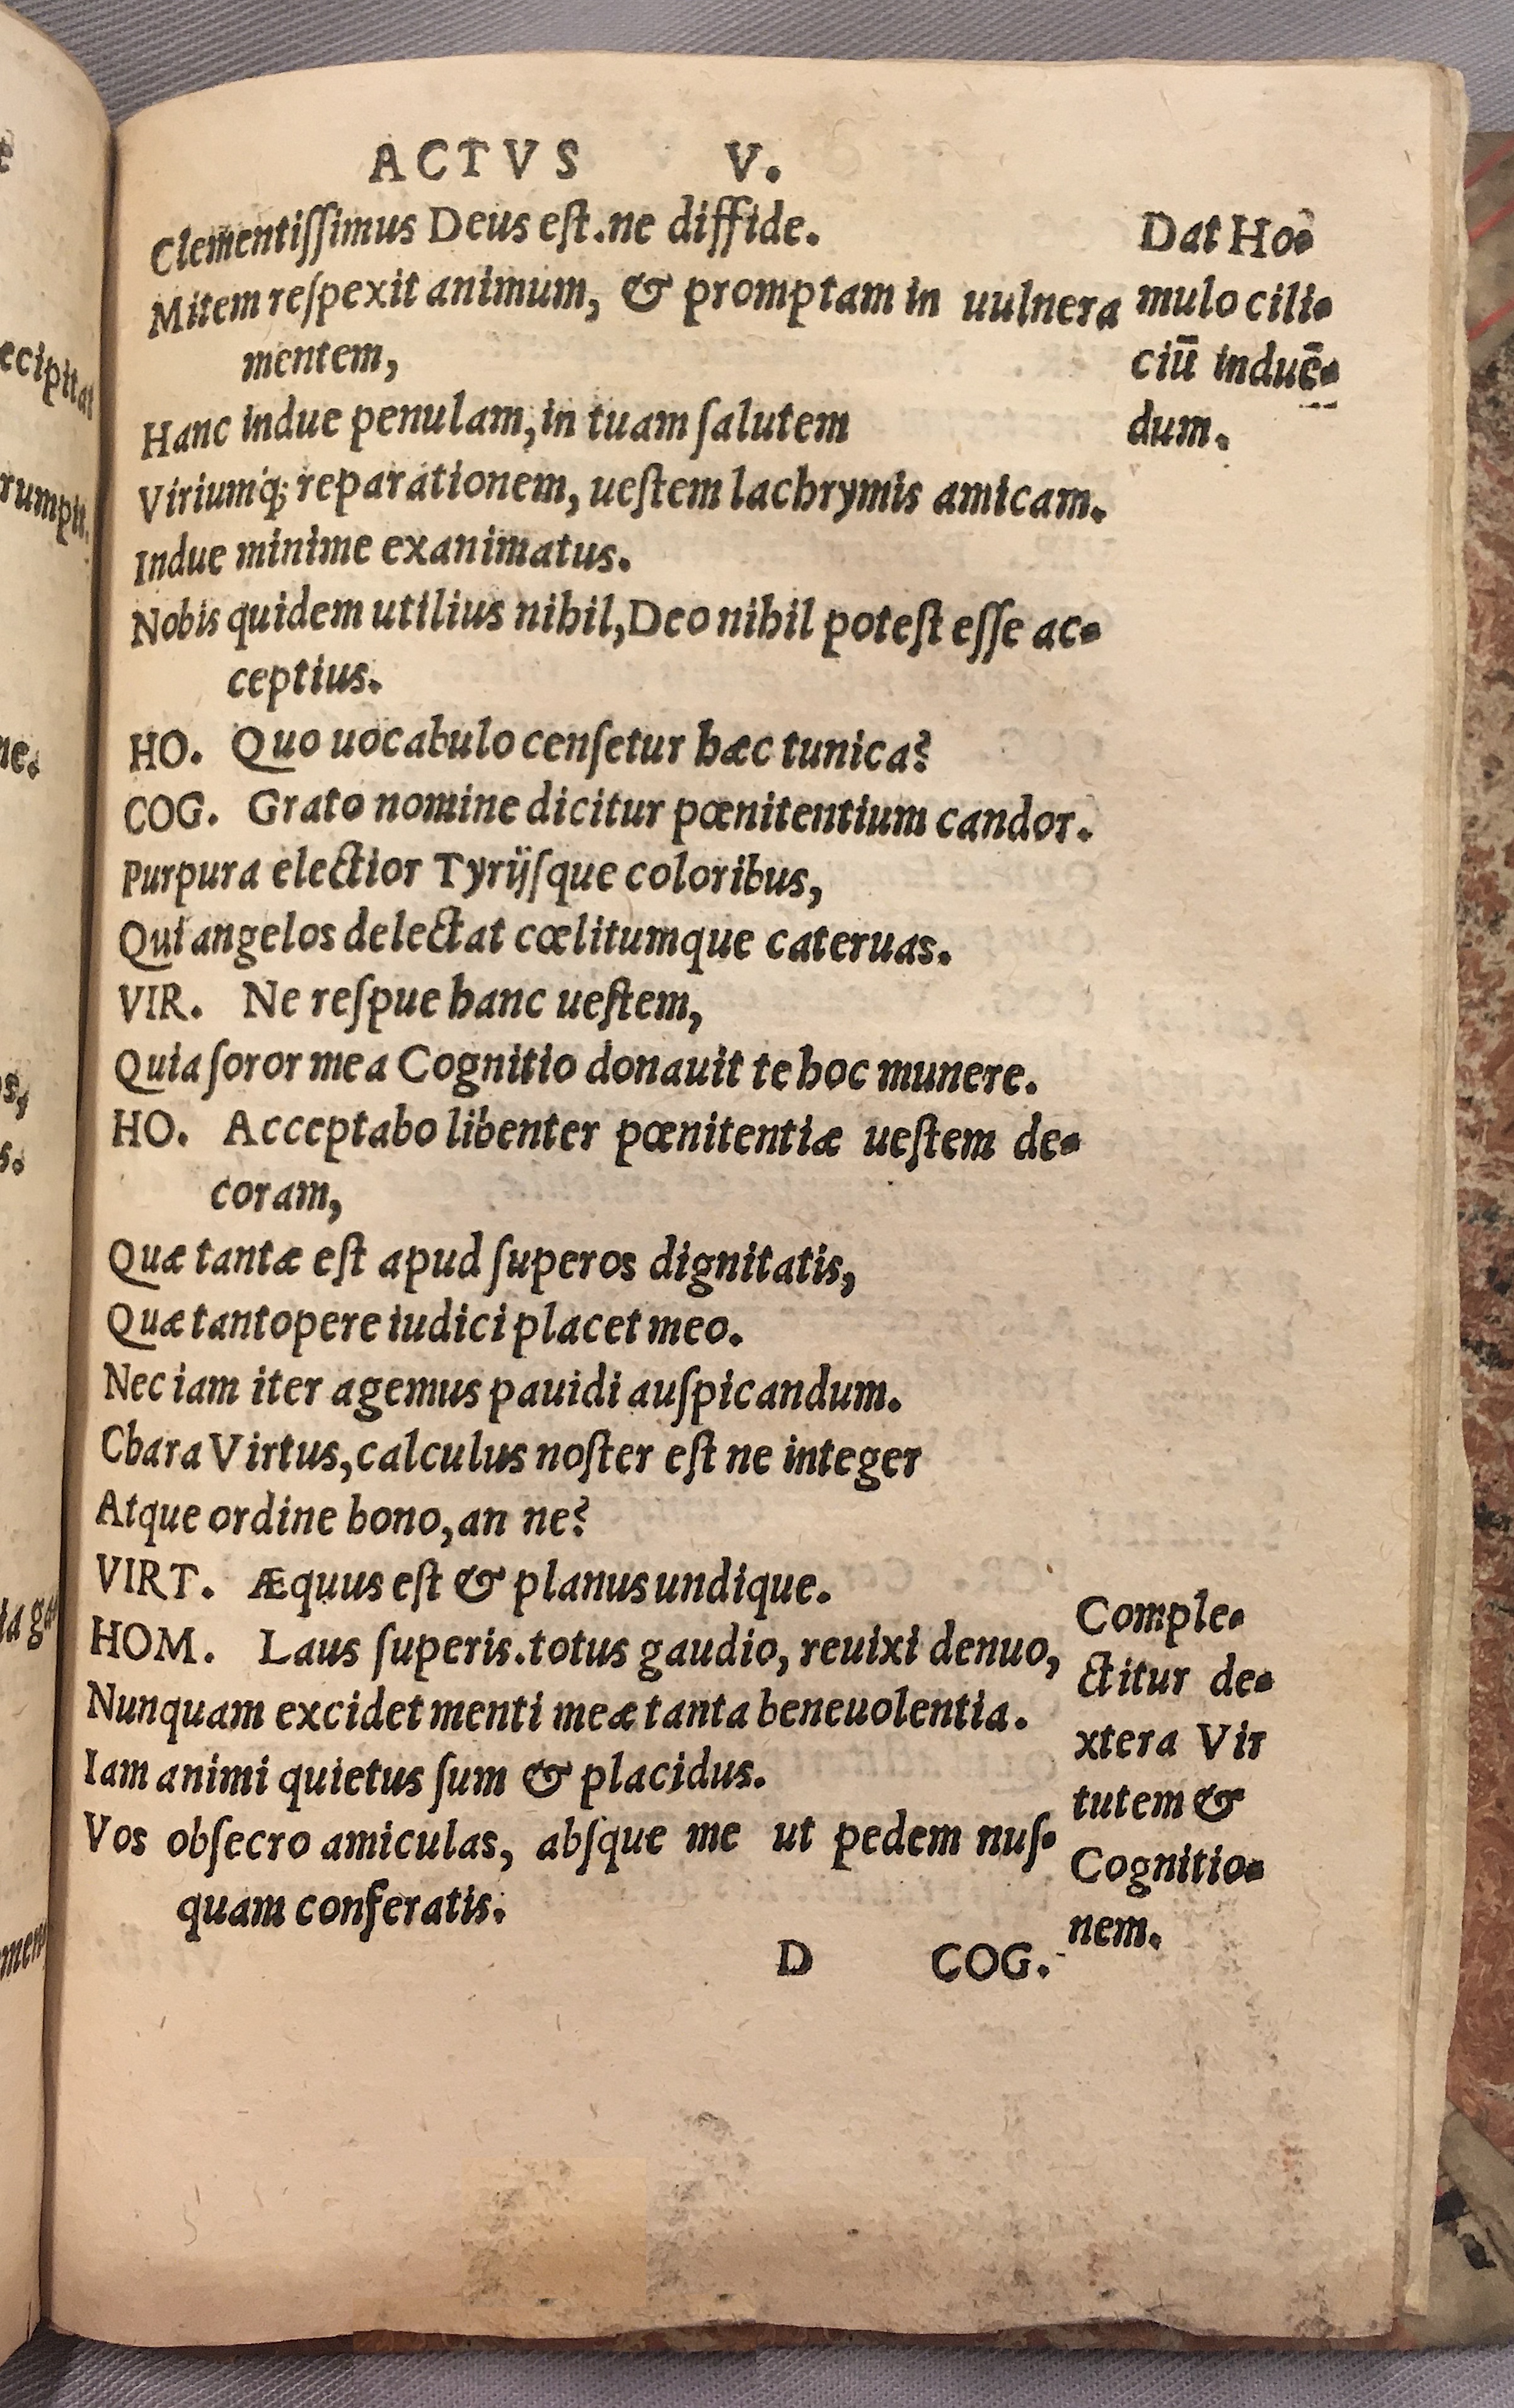 ACTVS V.
Clementiſſimus Deus eſt.ne diffide.
Mitem reſpexit animum, & promptam in uulnera
mentem,
Hanc indue penulam,in tuam ſalutem
Viriumq́; reparationem, ueſtem lachrymis amicam.
Indue minime exanimatus.
Nobis quidem utilius nihil,Deo nihil poteſt eſſe ac-
ceptius.
HO. Quo uocabulo cenſetur hæc tunica?
COG. Grato nomine dicitur pœnitentium candor.
Purpura electior Tyrijſque coloribus,
Qui angelos delectat cœlitumque cateruas.
VIR. Ne reſpue hanc ueſtem,
Quia ſoror mea Cognitio donauit te hoc munere.
HO. Acceptabo libenter pœnitentiæ ueſtem de-
coram,
Quæ tantæ eſt apud ſuperos dignitatis,
Quæ tantopere iudici placet meo.
Nec iam iter agemus pauidi auſpicandum.
Chara Virtus,calculus noſter eſt ne integer
Atque ordine bono,an ne?
VIRT. Æquus eſt & planus undique.
HOM. Laus ſuperis.totus gaudio, reuixi denuo,
Nunquam excidet menti meæ tanta beneuolentia.
Iam animi quietus ſum & placidus.
Vos obſecro amiculas, abſque me ut pedem nuſ-
quam conferatis.
D COG.
Dat Ho-
mulo cili-
ciū induē-
dum.
Comple-
ctitur de-
xtera Vir
tutem &
Cognitio-
nem.
ecipitat
rumpit.
ne.
s.